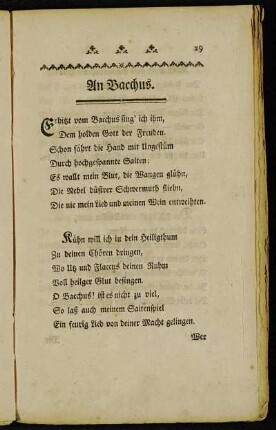 19
An Bacchus.
Erhitzt vom Bacchus sing' ich ihm,
Dem holden Gott der Freuden.
Schon fährt die Hand mit Ungestüm
Durch hochgespannte Saiten:
Es wallt mein Blut, die Wangen glühn,
Die Nebel düstrer Schwermuth fliehn,
Die nie mein Lied und meinen Wein entweihten.
Kühn will ich in dein Heiligthum
Zu deinen Chören dringen,
Wo Utz und Flaccus deinen Ruhm
Voll heilger Glut besingen.
O Bacchus! ist es nicht zu viel,
So laß auch meinem Saitenspiel
Ein feurig Lied von deiner Macht gelingen.
Wer